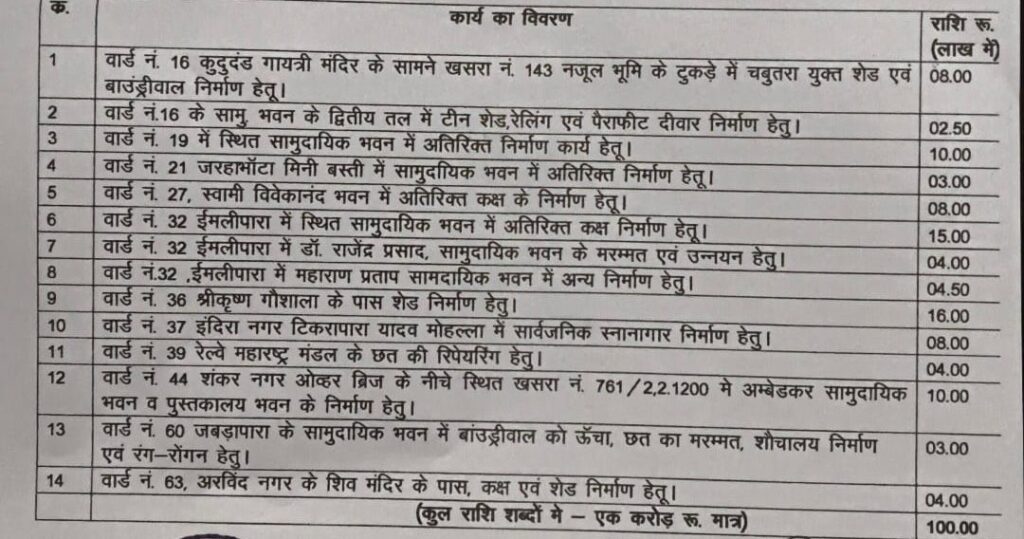 क. कार्य का विवरण राशि रू.
(लाख में)
1 वार्ड नं. 16 कुदुदंड गायत्री मंदिर के सामने खसरा नं. 143 नजूल भूमि के टुकड़े में चबुतरा युक्त शेड एवं 08.00
बाउंड्रीवाल निर्माण हेतू।
2 वार्ड नं.16 के सामु. भवन के द्वितीय तल में टीन शेड,रेलिंग एवं पैराफीट दीवार निर्माण हेतु। 02.50
3 वार्ड नं. 19 में स्थित सामुदायिक भवन में अतिरिक्त निर्माण कार्य हेतू। 10.00
4 वार्ड नं. 21 जरहाभॉटा मिनी बस्ती में सामुदायिक भवन में अतिरिक्त निर्माण हेतू। 03.00
5 वार्ड नं. 27, स्वामी विवेकानंद भवन में अतिरिक्त कक्ष के निर्माण हेतू। 08.00
6 वार्ड नं. 32 ईमलीपारा में स्थित सामुदायिक भवन में अतिरिक्त कक्ष निर्माण हेतु। 15.00
7 वार्ड नं. 32 ईमलीपारा में डॉ. राजेंद्र प्रसाद, सामुदायिक भवन के मरम्मत एवं उन्नयन हेतु। 04.00
8 वार्ड नं.32 ,ईमलीपारा में महाराण प्रताप सामदायिक भवन में अन्य निर्माण हेतु। 04.50
9 वार्ड नं. 36 श्रीकृष्ण गौशाला के पास शेड निर्माण हेतु। 16.00
10 वार्ड नं. 37 इंदिरा नगर टिकरापारा यादव मोहल्ला में सार्वजनिक स्नानागार निर्माण हेतु। 08.00
11 वार्ड नं. 39 रेल्वे महाराष्ट्र मंडल के छत की रिपेयरिंग हेतु। 04.00
12 वार्ड नं. 44 शंकर नगर ओव्हर ब्रिज के नीचे स्थित खसरा नं. 761/2,2.1200 मे अम्बेडकर सामुदायिक 10.00
भवन व पुस्तकालय भवन के निर्माण हेतु।
13 वार्ड नं. 60 जबड़ापारा के सामुदायिक भवन में बांउड्रीवाल को ऊँचा, छत का मरम्मत, शौचालय निर्माण 03.00
एवं रंग–रोंगन हेतु।
14 वार्ड नं. 63, अरविंद नगर के शिव मंदिर के पास, कक्ष एवं शेड निर्माण हेतू। 04.00
(कुल राशि शब्दों मे – एक करोड़ रू. मात्र) 100.00